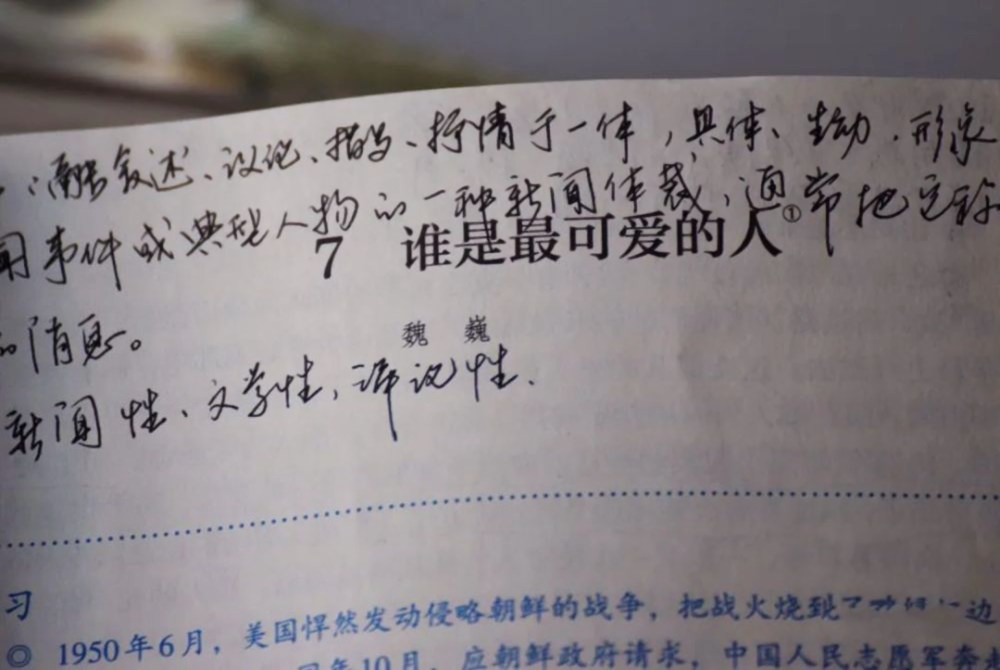 融叙述、议论、描写、抒情于一体,具体、生动、形象
闻事件或典型人物的一种新闻体裁,通常把它称
7 谁是最可爱的人①
的消息。
魏 巍
新闻性、文学性,评议性.
习
◎ 1950年6月,美国悍然发动侵略朝鲜的战争,把战火烧到 边
年10月,应朝鲜政府请求,中国人民志愿军奔赴